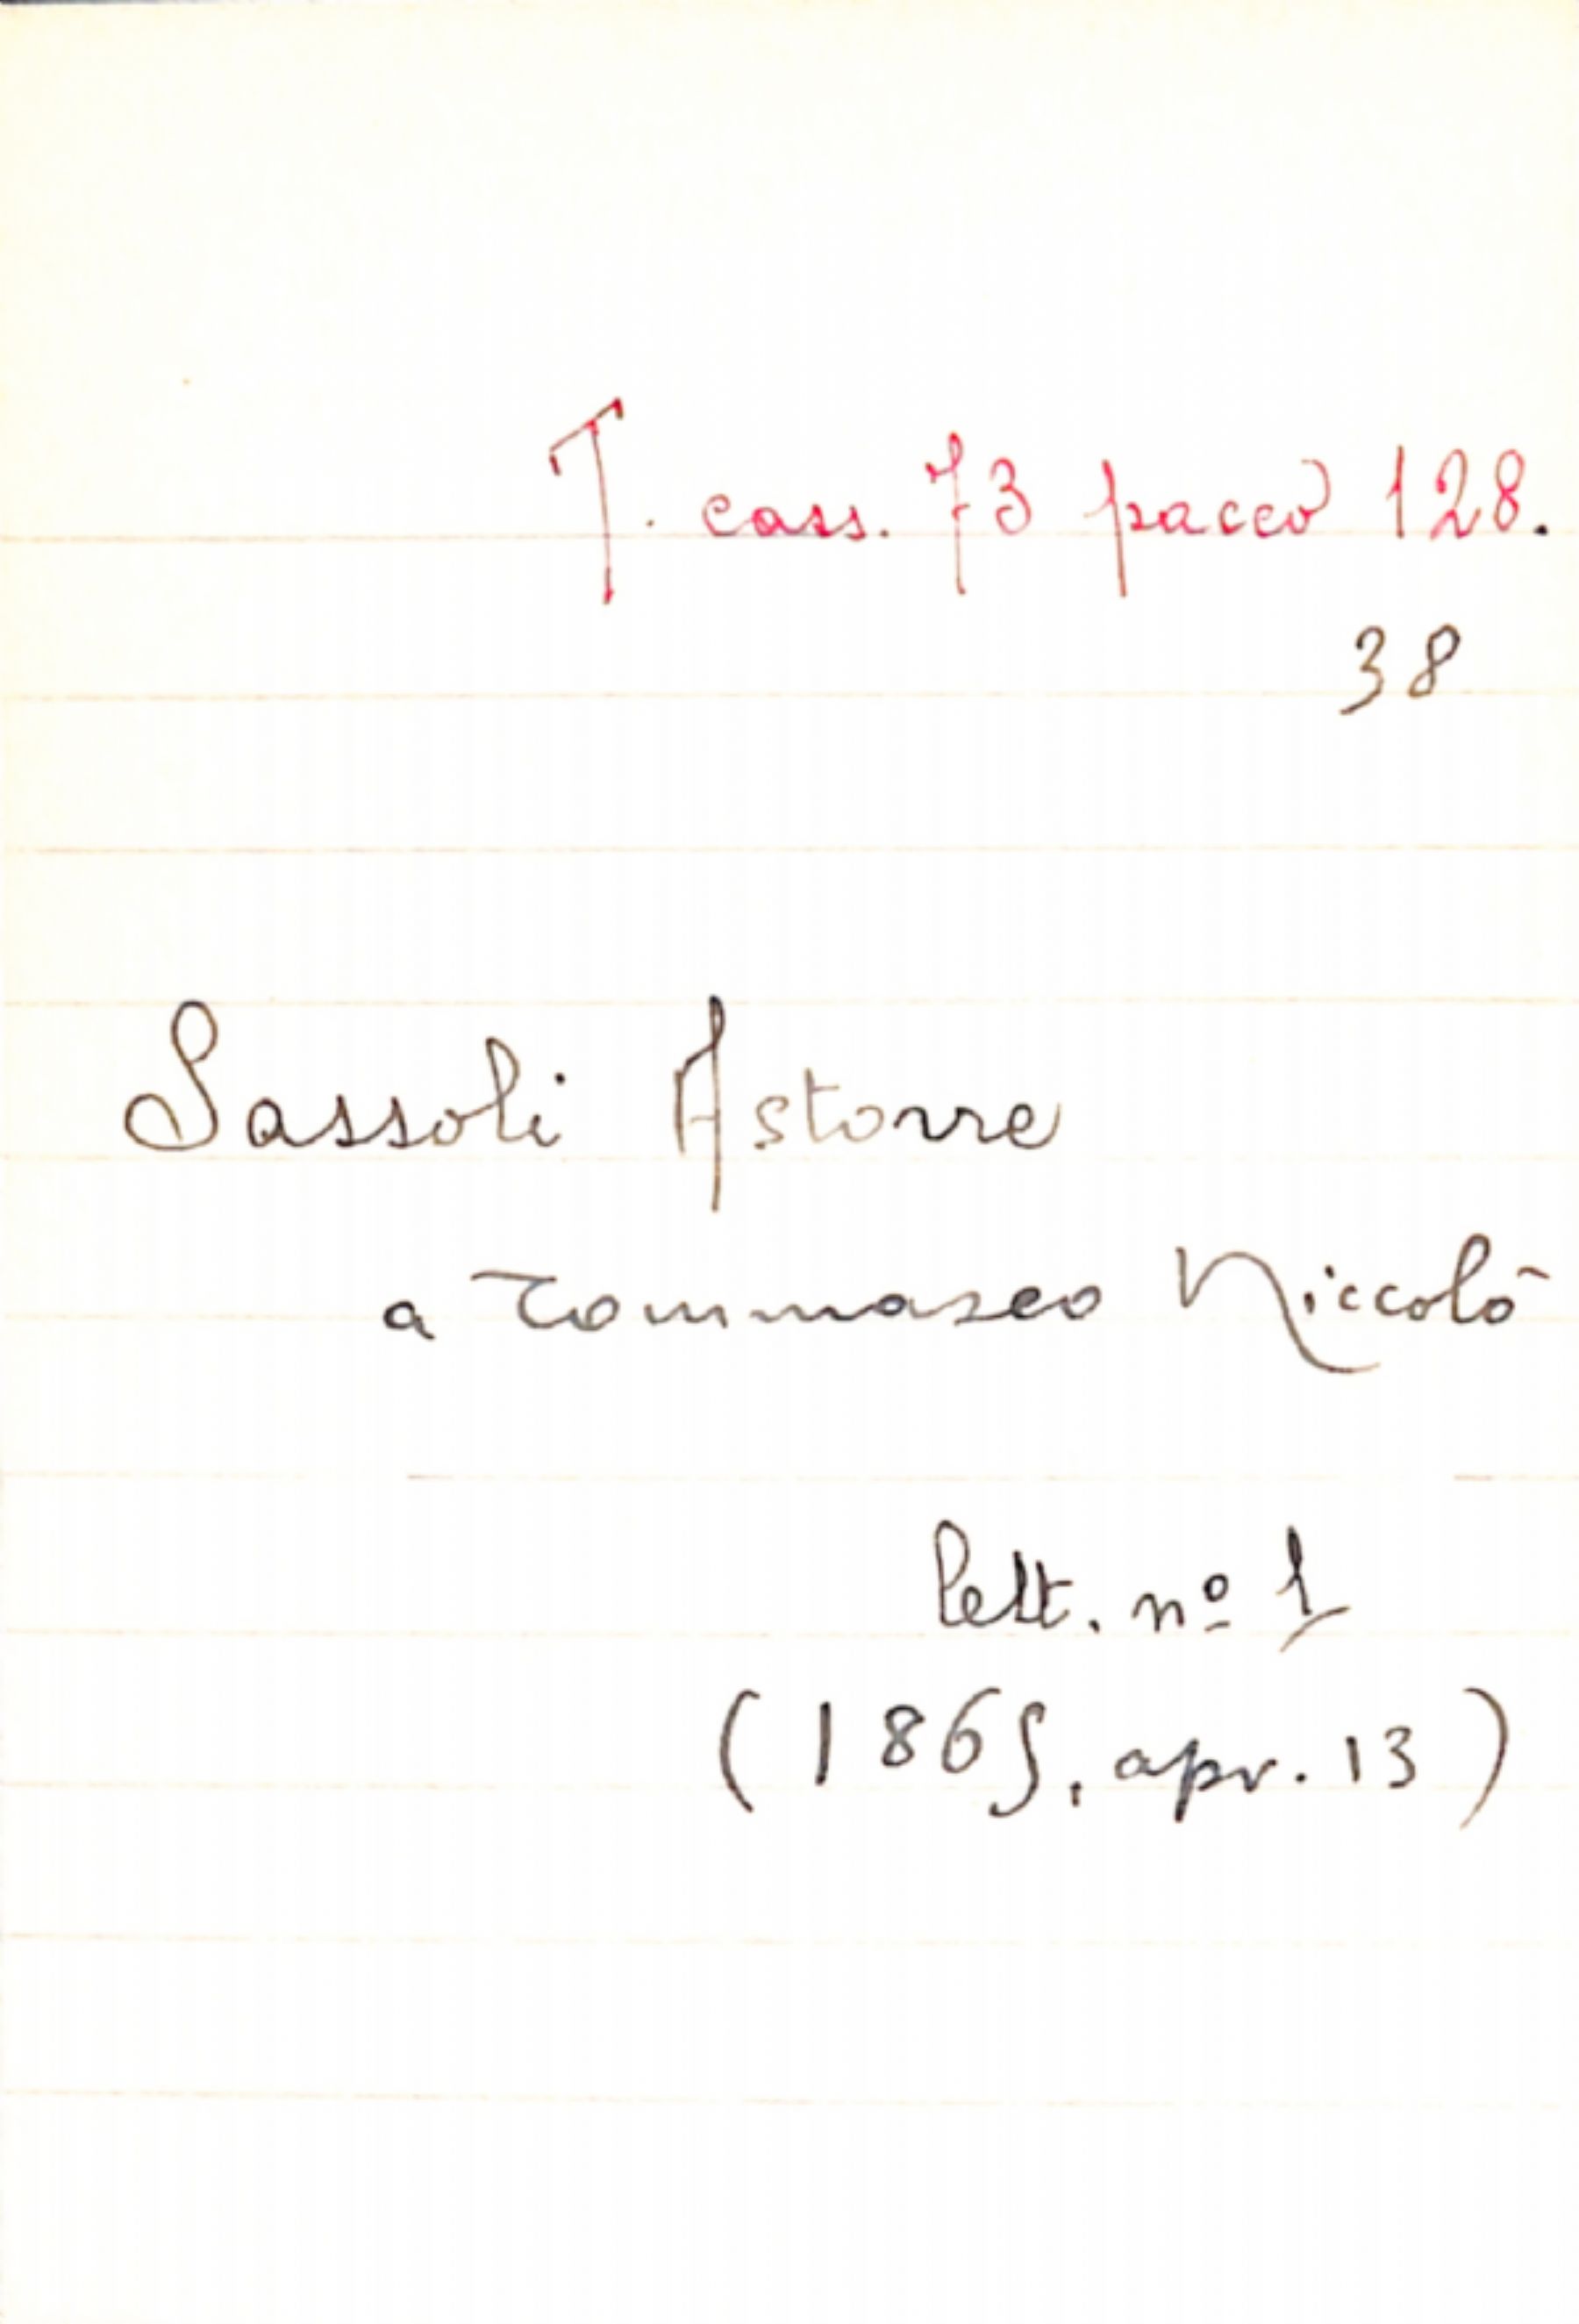 T. cass. 73 pacco 128.
38
Sassoli Astorre
a Tommaseo Niccolò
lett. nº 1
(1865, apr. 13)